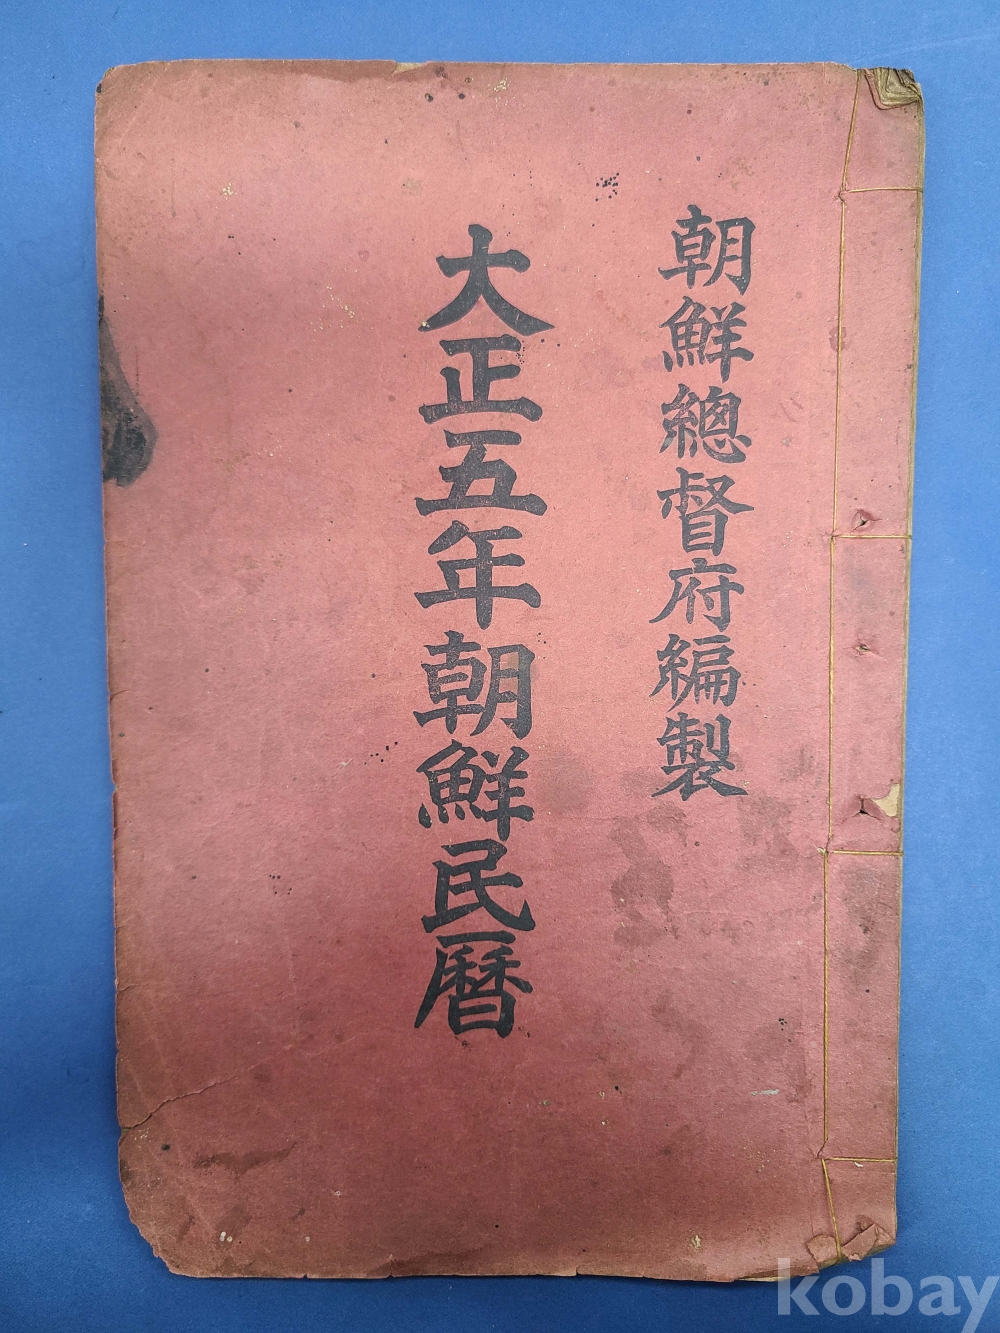 朝鮮總督府編製
大正五年朝鮮民曆
kobay